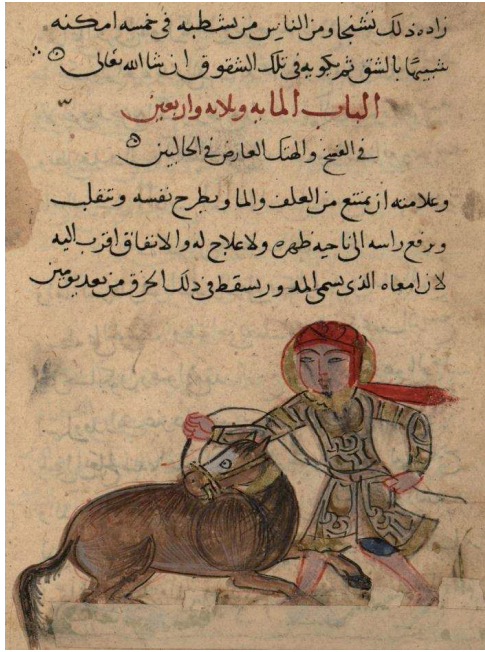 زاده ذلك تشنجا ومن الناس من يشطبه في خمسه امكنه
شبيها بالشق ثم يكويه في تلك الشقوق ان شا الله تعالى
الباب المايه وثلاثه واربعين
في الفسخ والهتك العارض في الحالبين
وعلامته ان يمتنع من العلف والما ويطرح نفسه ويتقلب
ويرفع راسه الى ناحيه ظهره ولا علاج له والانفاق اقرب اليه
لان امعاه الذي يسمى المدور يسقط في ذلك الخرق من بعد يومين